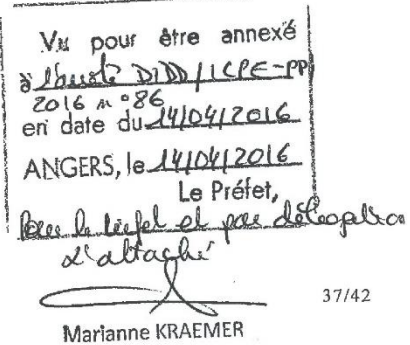 Vu pour être annexé
à l'arrêté DIDD/ICPE-PP
2016 n°86
en date du 14/04/2016
ANGERS, le 14/04/2016
Le Préfet,
Pour le Préfet et par délégation
L'attaché
37/42
Marianne KRAEMER